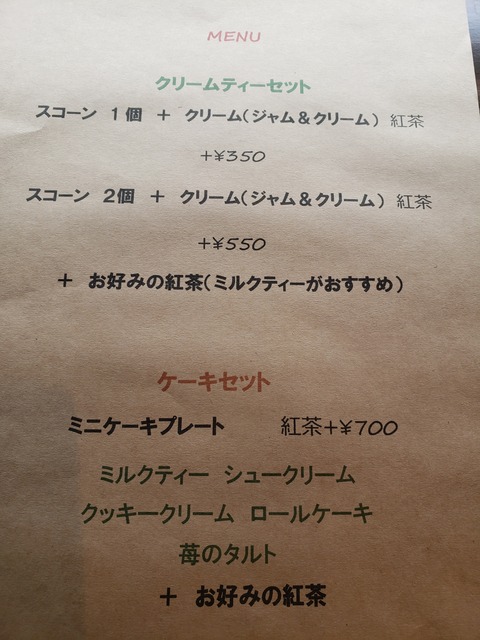 MENU
クリームティーセット
スコーン 1個 + クリーム(ジャム&クリーム) 紅茶
+¥350
スコーン 2個 + クリーム(ジャム&クリーム) 紅茶
+¥550
+ お好みの紅茶(ミルクティーがおすすめ)
ケーキセット
ミニケーキプレート 紅茶+¥700
ミルクティー シュークリーム
クッキークリーム ロールケーキ
苺のタルト
+ お好みの紅茶